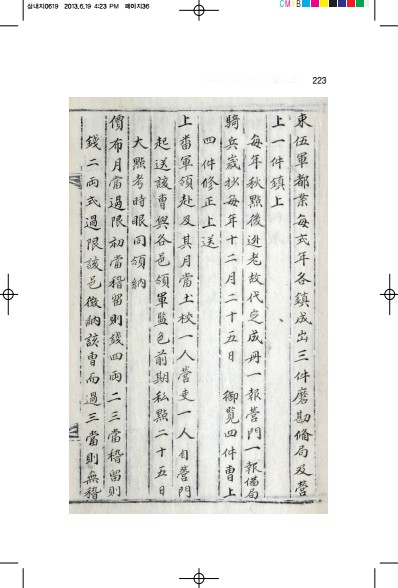 삼내지0619 2013.6.19 4:23 PM 페이지36
CM B
223
束伍軍都案每式年各鎮成出三件磨勘備局及營
上一件鎮上
每年秋點後逃老故代定成冊一報營門一報備局
騎兵歲抄每年十二月二十五日 御覽四件曹上
四件修正上送
上番軍領赴及其月當土校一人營吏一人自營門
起送該曹與各邑領軍監色前期私點二十五日
大點考時眼同領納
價布月當過限初當稽留則錢四兩二三當稽留則
錢二兩式過限該邑徵納該曹而過三當則無稽